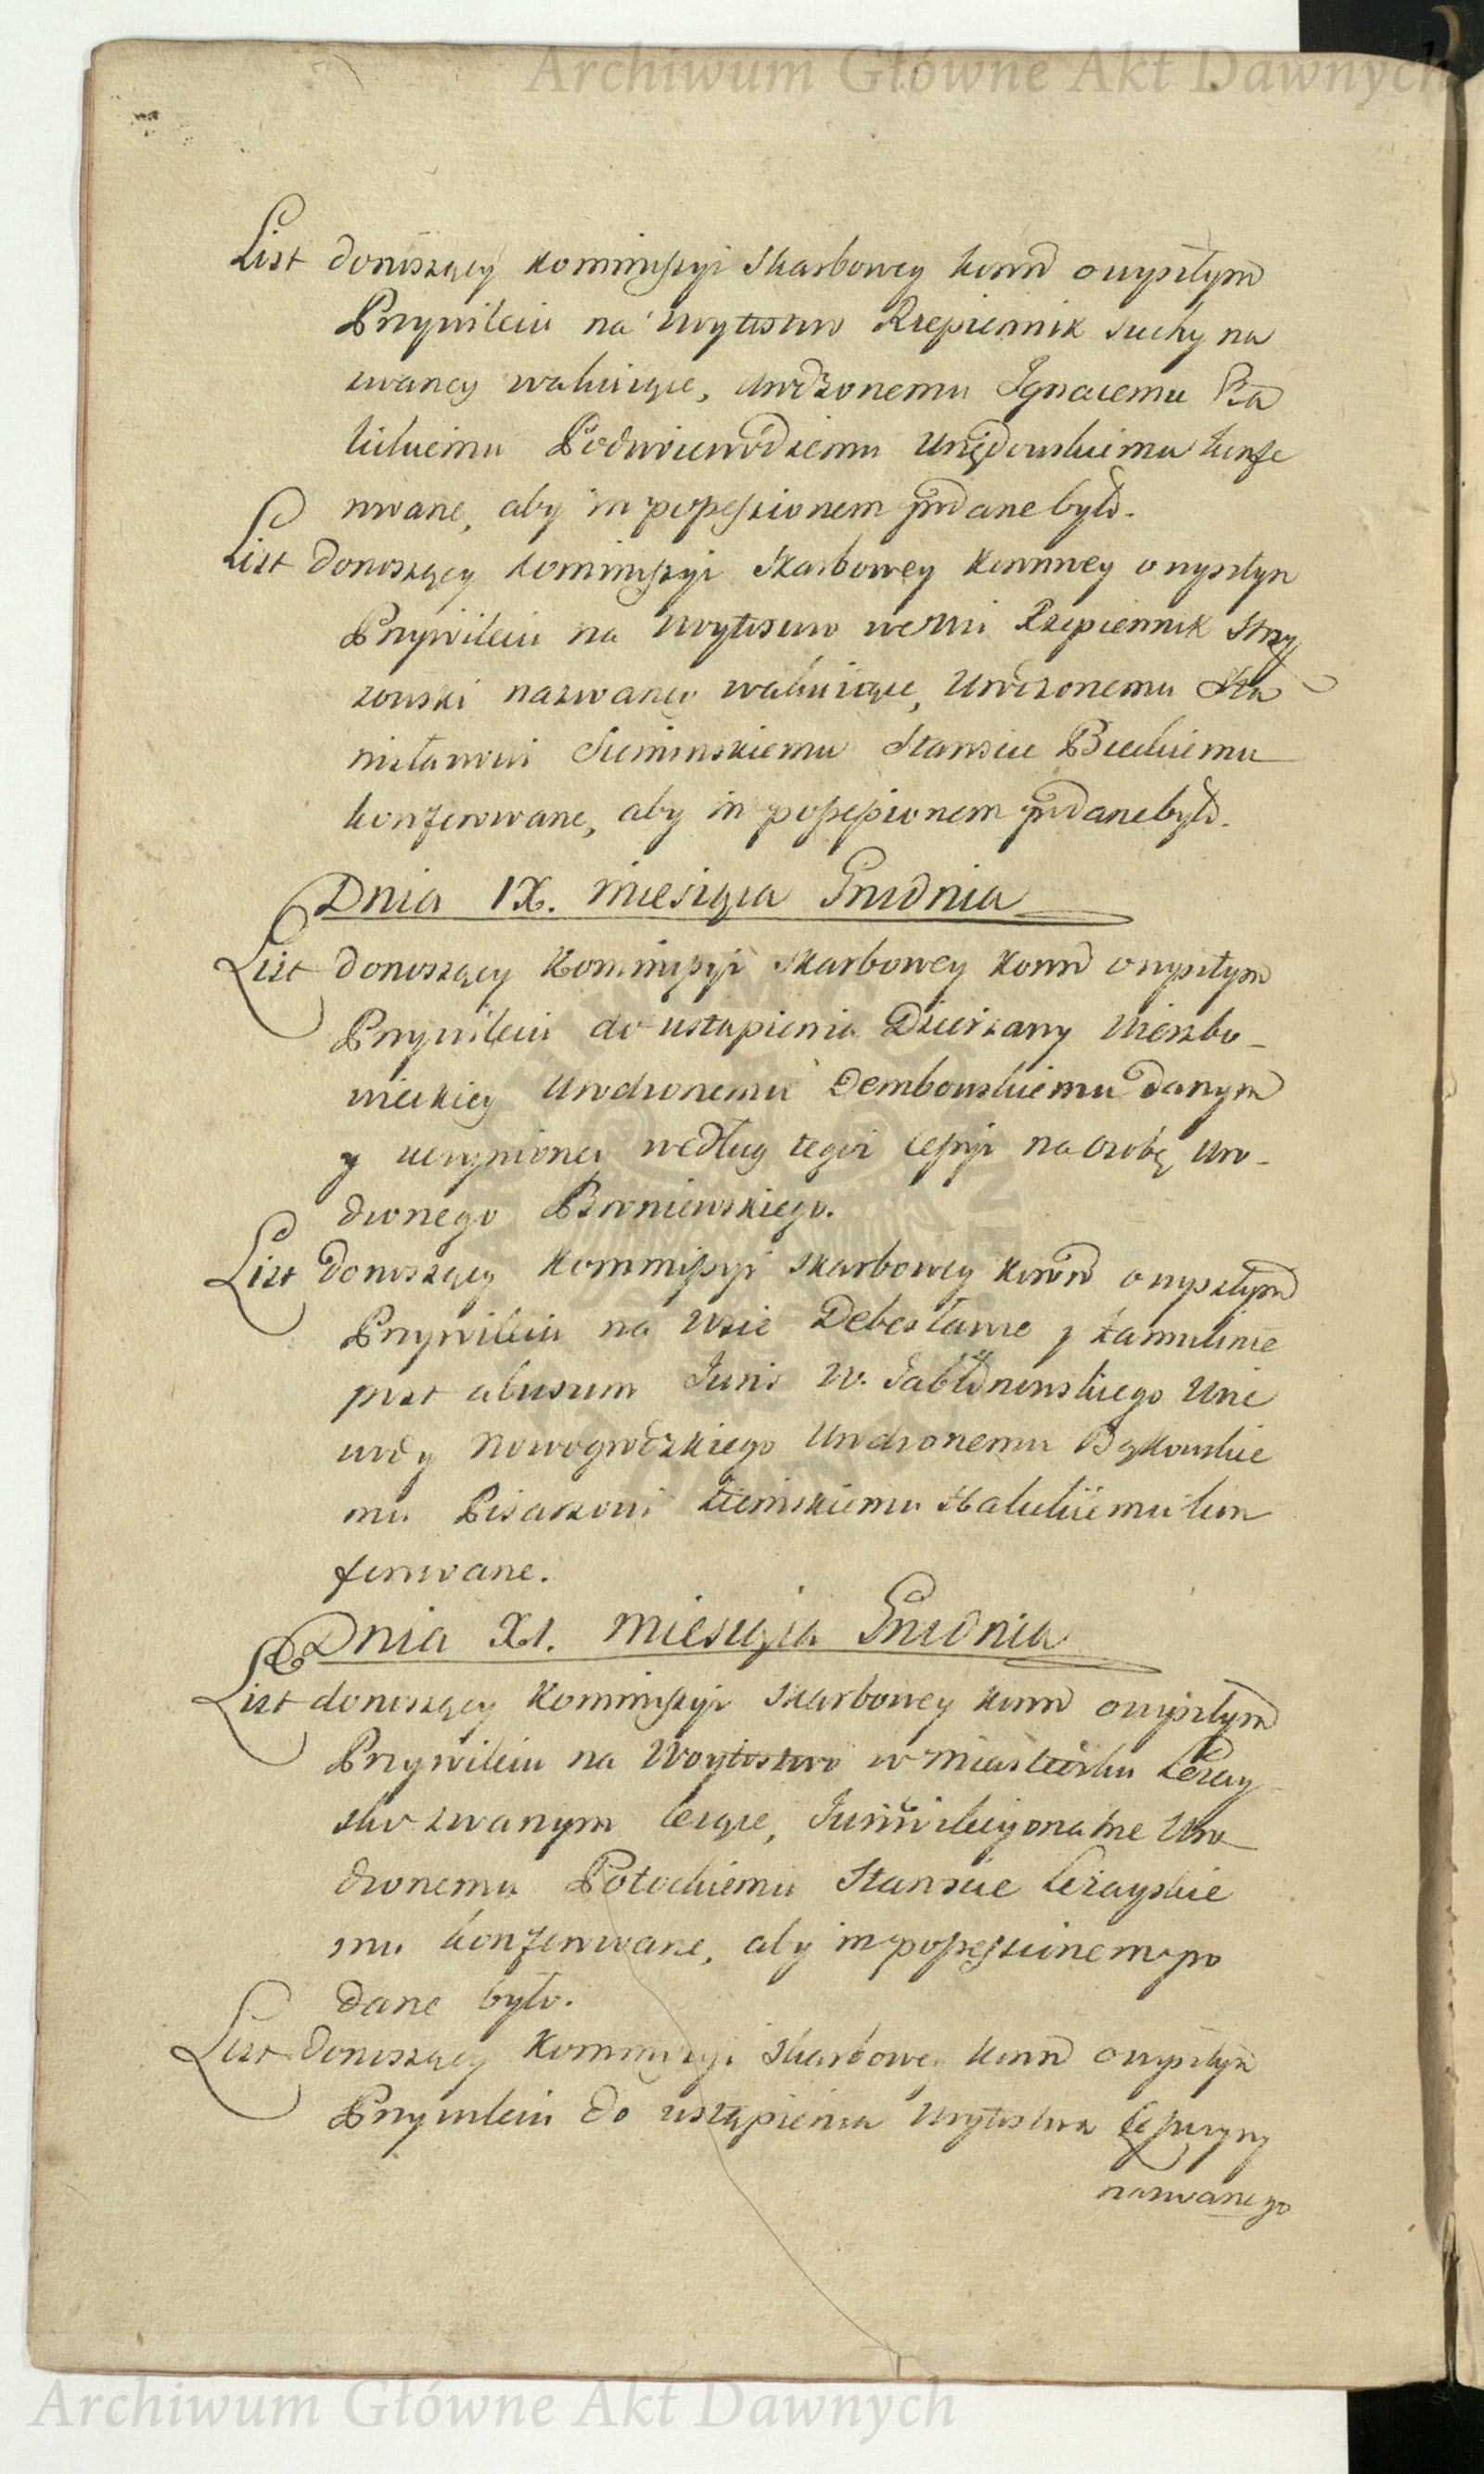 Archiwum Główne Akt Dawnych
List donoszący Kommissyi Skarbowey koron o wyszłym
Przywileiu na Woytostwo Rzepiennik suchy na
zwaney wakuiące, Urodzonemu Ignacemu
Podwoiewodzemu konfe
rowane, aby in possessionem podane było.
List donoszący Kommissyi Skarbowey Koronney o wyszłym
Przywileiu na Woytostwo we Wsi Rzepiennik Strzy
zowski nazwaney wakuiące, Urodzonemu Sta
nisławowi Sieminskiemu Staroście Bieckiemu
konferowane, aby in possessionem podane było.
Dnia IX. Miesiąca Grudnia
List donoszący Kommissyi Skarbowey koron o wyszłym
Przywileiu do ustąpienia Dzierzawy
Urodzonemu Dembowskiemu danym
y uczynioney według tegoż cessyi na osobę Uro-
dzonego Broniewskiego.
List donoszący Kommissyi Skarbowey koron o wyszłym
Przywileiu na Wsie Debesławce y
post abusum Juris W. Jabłonowskiego Woie
wody Nowogrodzkiego Urodzonemu Bąkowskie
mu Pisarzowi Ziemskiemu Halickiemu kon
ferowane.
Dnia XI. Miesiąca Grudnia
List donoszący Kommissyi Skarbowey koron o wyszłym
Przywileiu na Woytostwo w Miasteczku Leżay
sku zwanym leżące, Jurisdikcyonalne Uro
dzonemu Potockiemu Staroście Leżayskie
mu konferowane, aby in possessionem po
dane było.
List donoszący Kommissyi Skarbowey koron o wyszłym
Przywileiu do ustąpienia Woytostwa
nazwanego
Archiwum Główne Akt Dawnych